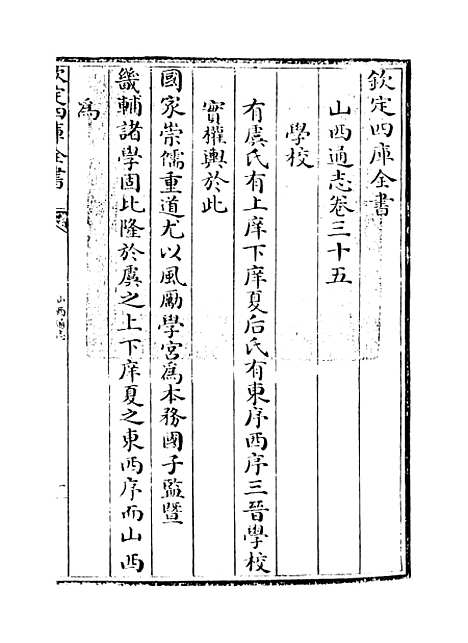 欽定四庫全書
山西通志卷三十五
學校
有虞氏有上庠下庠夏后氏有東序西序三晉學校
實權輿於此
國家崇儒重道尤以風勵學宮為本務國子監暨
畿輔諸學固比隆於虞之上下庠夏之東西序而山西
為
欽定四庫全書
山西通志